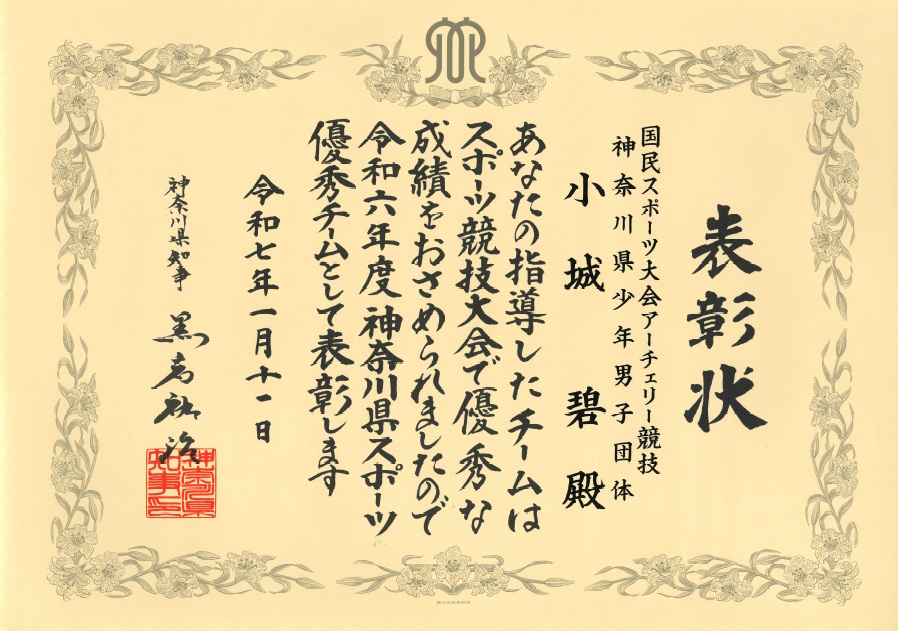 表彰状
国民スポーツ大会アーチェリー競技
神奈川県少年男子団体
小城碧殿
あなたの指導したチームは
スポーツ競技大会で優秀な
成績をおさめられましたので
令和六年度神奈川県スポーツ
優秀チームとして表彰します
令和七年一月十一日
神奈川県知事
黒岩祐治
神奈川県
知事之印